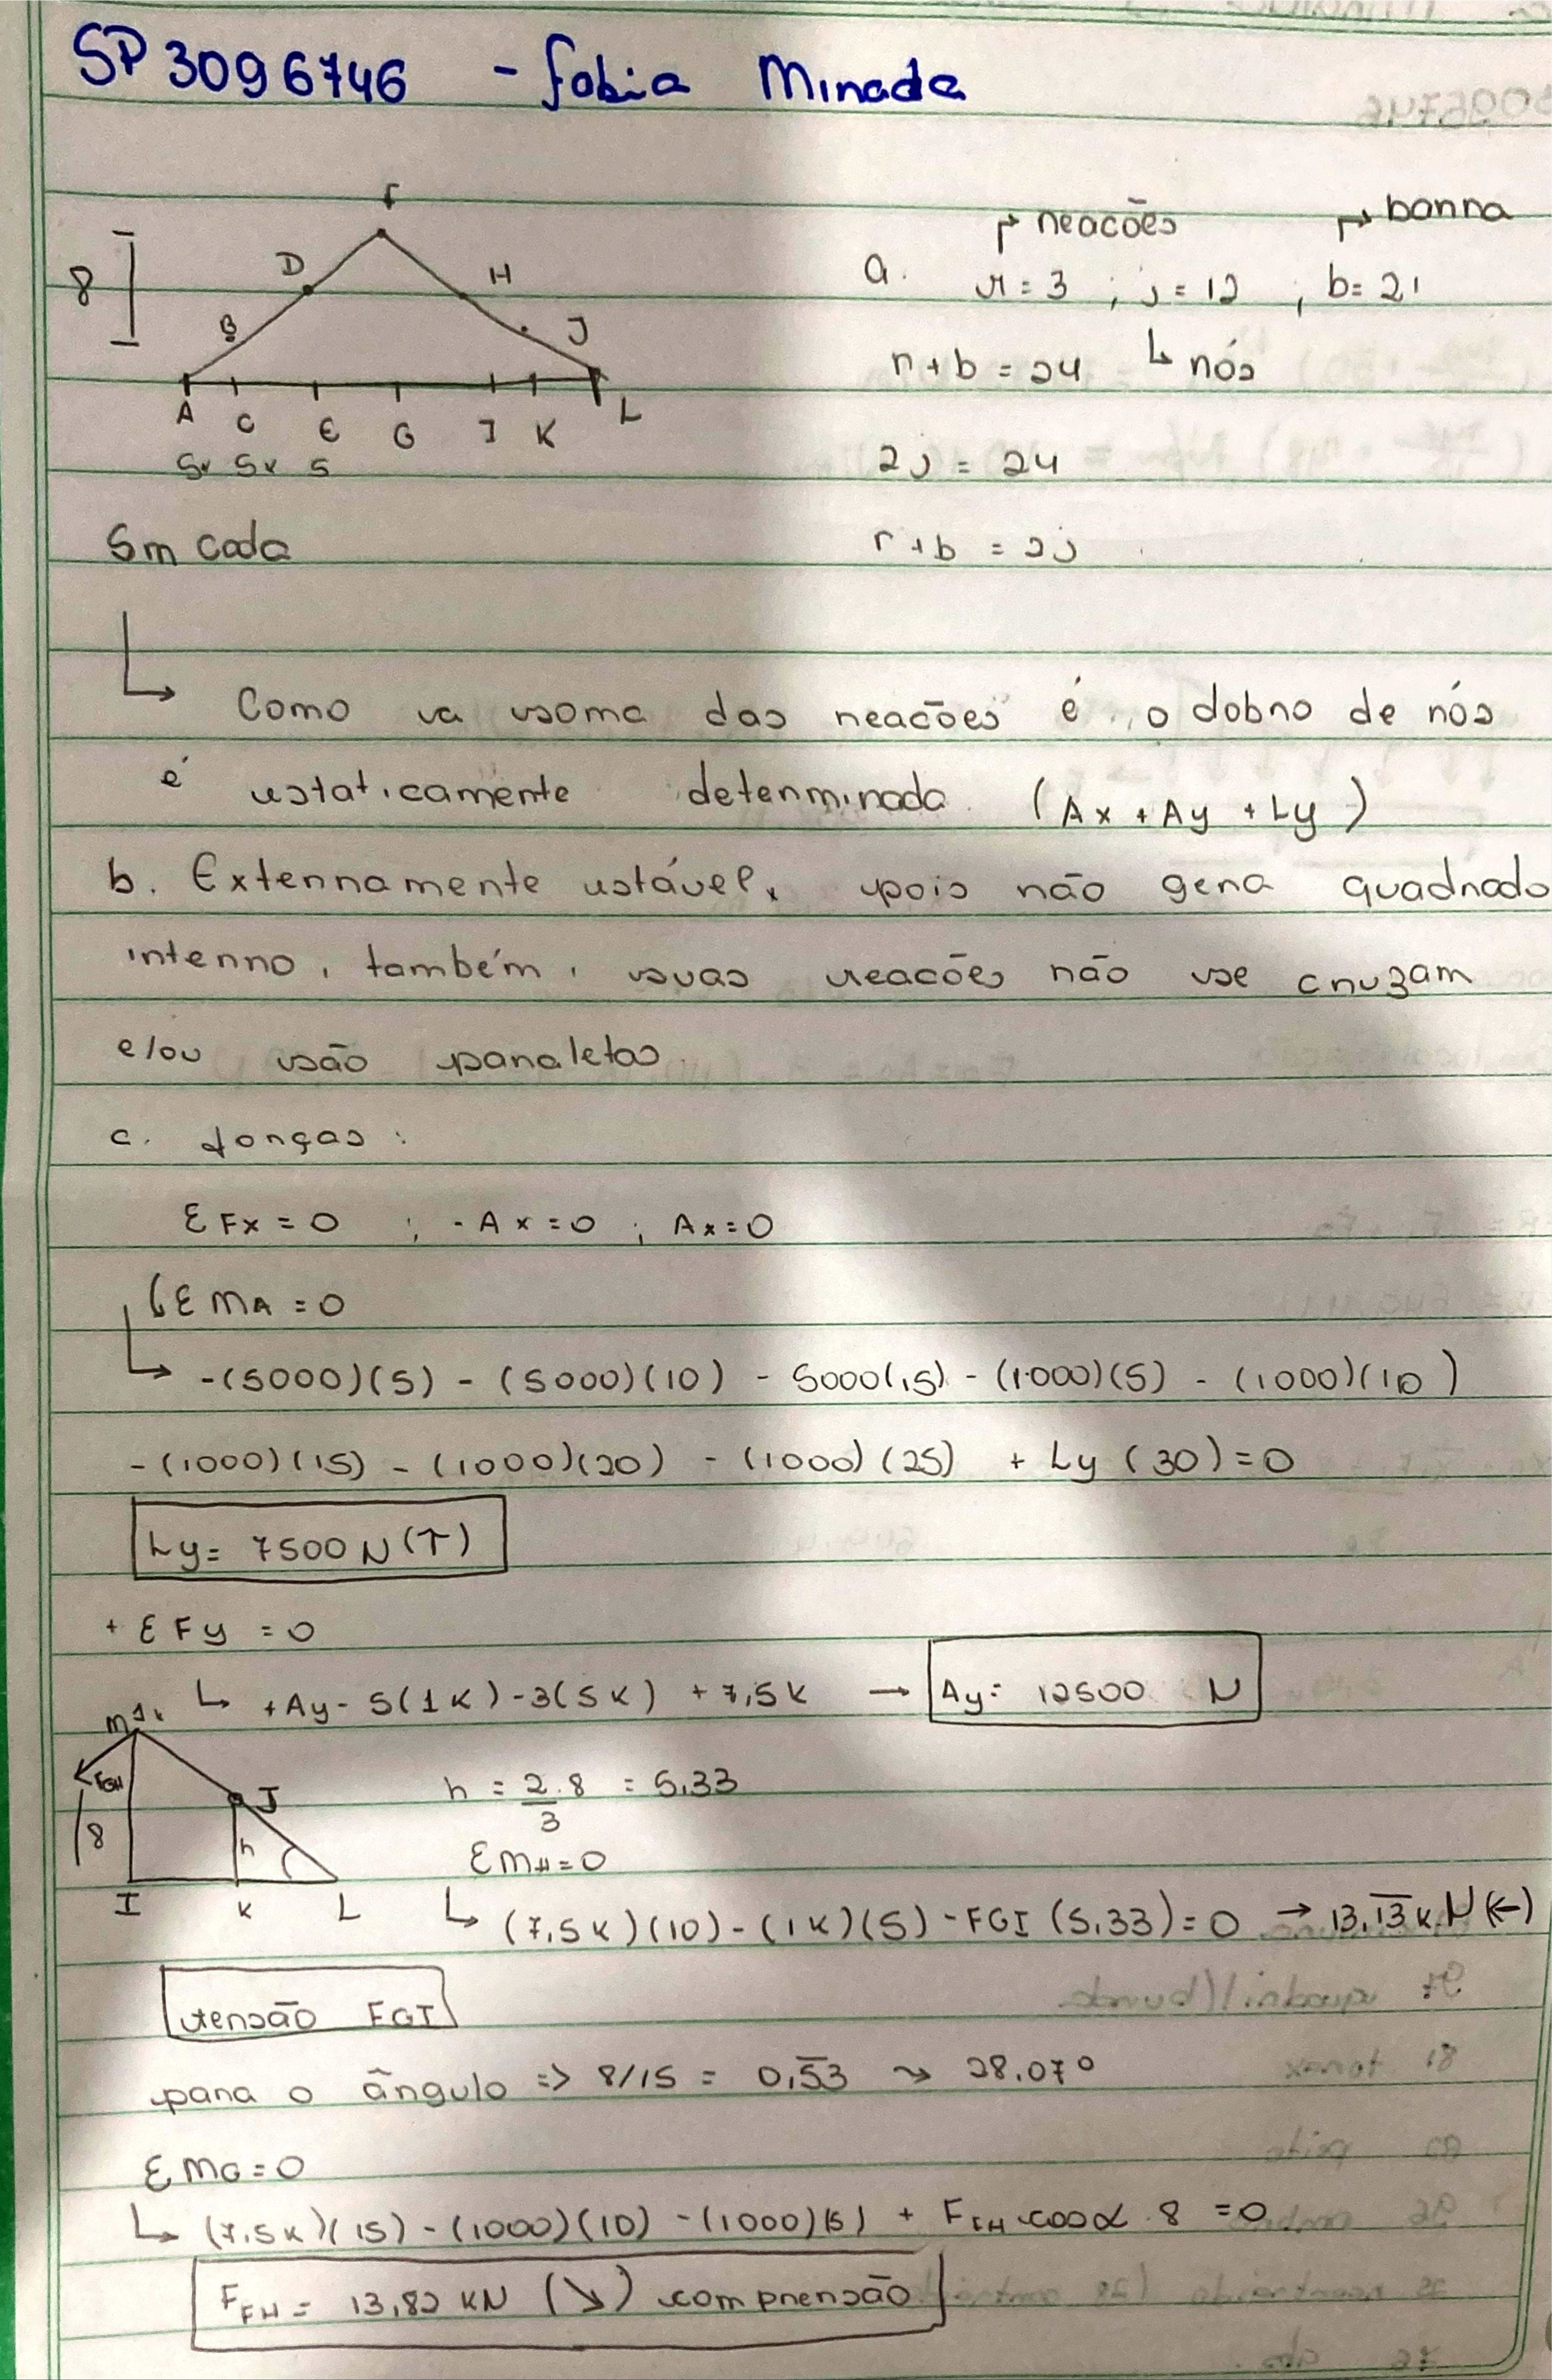 SP3096746 - Fabia Minada
F
D
H
8
B
J
A C E G I K L
5x 5x 5
5m cada
reacões
barra
a. r = 3 ; j = 12 , b = 21
r + b = 24
nós
2j = 24
r + b = 2j
Como a soma das reacões é o dobro de nós
é estaticamente determinada (Ax + Ay + Ly)
b. Externamente estável, pois não gera quadrado
interno, também, suas reacões não se cruzam
e/ou são paraletas.
c. forças:
ΣFx = 0 ; -Ax = 0 ; Ax = 0
ΣMA = 0
-(5000)(5) - (5000)(10) - 5000(15) - (1000)(5) - (1000)(10)
-(1000)(15) - (1000)(20) - (1000)(25) + Ly (30) = 0
Ly = 7500 N (↑)
+ ΣFy = 0
+Ay - 5(1K) - 3(5K) + 7,5K → Ay = 12500 N
FGH
8
J
h
I K L
h = 2.8/3 = 5,33
ΣMH = 0
(7,5K)(10) - (1K)(5) - FGI (5,33) = 0 → 13,13 K.N (←)
tensão FGI
para o ângulo => 8/15 = 0,53 ⇝ 28,07°
ΣMG = 0
(7,5K)(15) - (1000)(10) - (1000)(5) + FFH cosα . 8 = 0
FFH = 13,82 KN (↘) comprensão